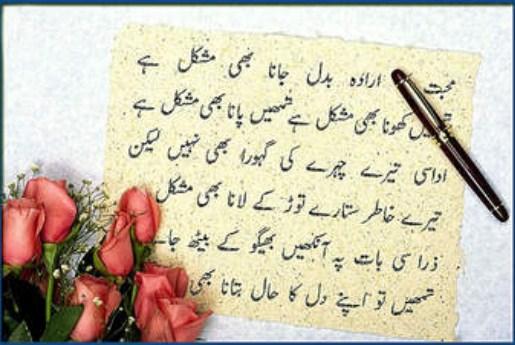 محبت ارادہ بدل جانا بھی مشکل ہے
تمہیں کھونا بھی مشکل ہے تمھیں پانا بھی مشکل ہے
اداسی تیرے چہرے کی گہورا بھی نہیں لیکن
تیرے خاطر ستارے توڑ کے لانا بھی مشکل
ذرا سی بات پہ آنکھیں بھیگو کے بیٹھ جا
تمھیں تو اپنے دل کا حال بتانا بھی